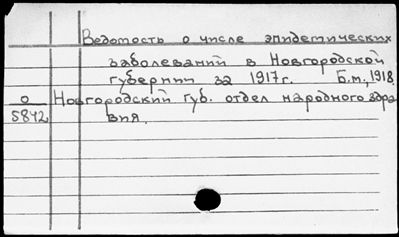 Ведомость о числе эпидемических
заболеваний в Новгородской
губернии за 1917г. Б.м., 1918.
О
5842
Новгородский губ. отдел народного здра
вия.